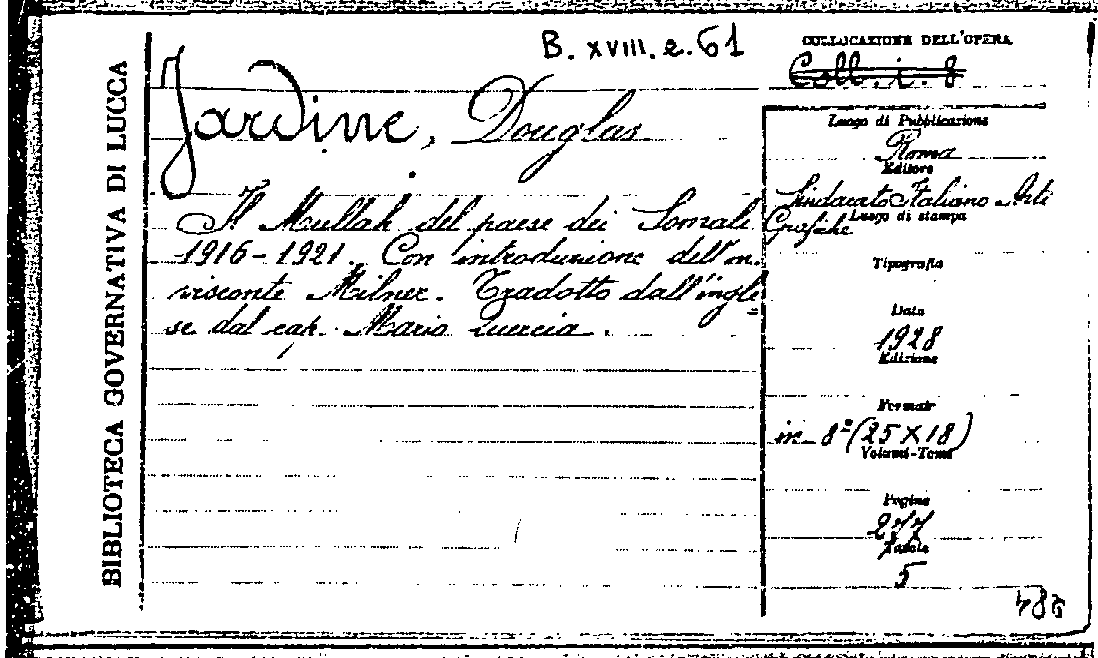 BIBLIOTECA GOVERNATIVA DI LUCCA
B. XVIII. e. 61
COLLOCAZIONE DELL'OPERA
Coll. i. 8
Jardine, Douglas
Il Mullah del paese dei Somali
1916-1921. Con introduzione dell'on.
visconte Milner. Tradotto dall'ingle
se dal cap. Mario Quercia.
Luogo di Pubblicazione
Roma
Editore
Sindacato Italiano Arti
Grafiche
Luogo di stampa
Tipografia
Data
1928
Edizione
Formato
in-8º (25 X 18)
Volumi-Tomi
Pagine
277
Tavole
5